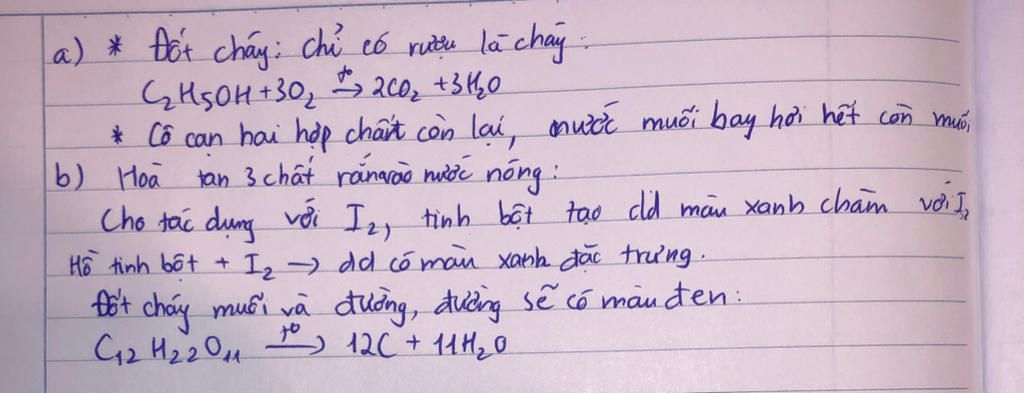 a) * Đốt cháy: chỉ có rượu là cháy:
C₂H₅OH + 3O₂ →t° 2CO₂ + 3H₂O
* Cô cạn hai hợp chất còn lại, nước muối bay hơi hết còn muối
b) Hoà tan 3 chất rắn vào nước nóng:
Cho tác dụng với I₂, tinh bột tạo dd màu xanh chàm với I₂
Hồ tinh bột + I₂ → dd có màu xanh đặc trưng.
Đốt cháy muối và đường, đường sẽ có màu đen:
C₁₂H₂₂O₁₁ →t° 12C + 11H₂O